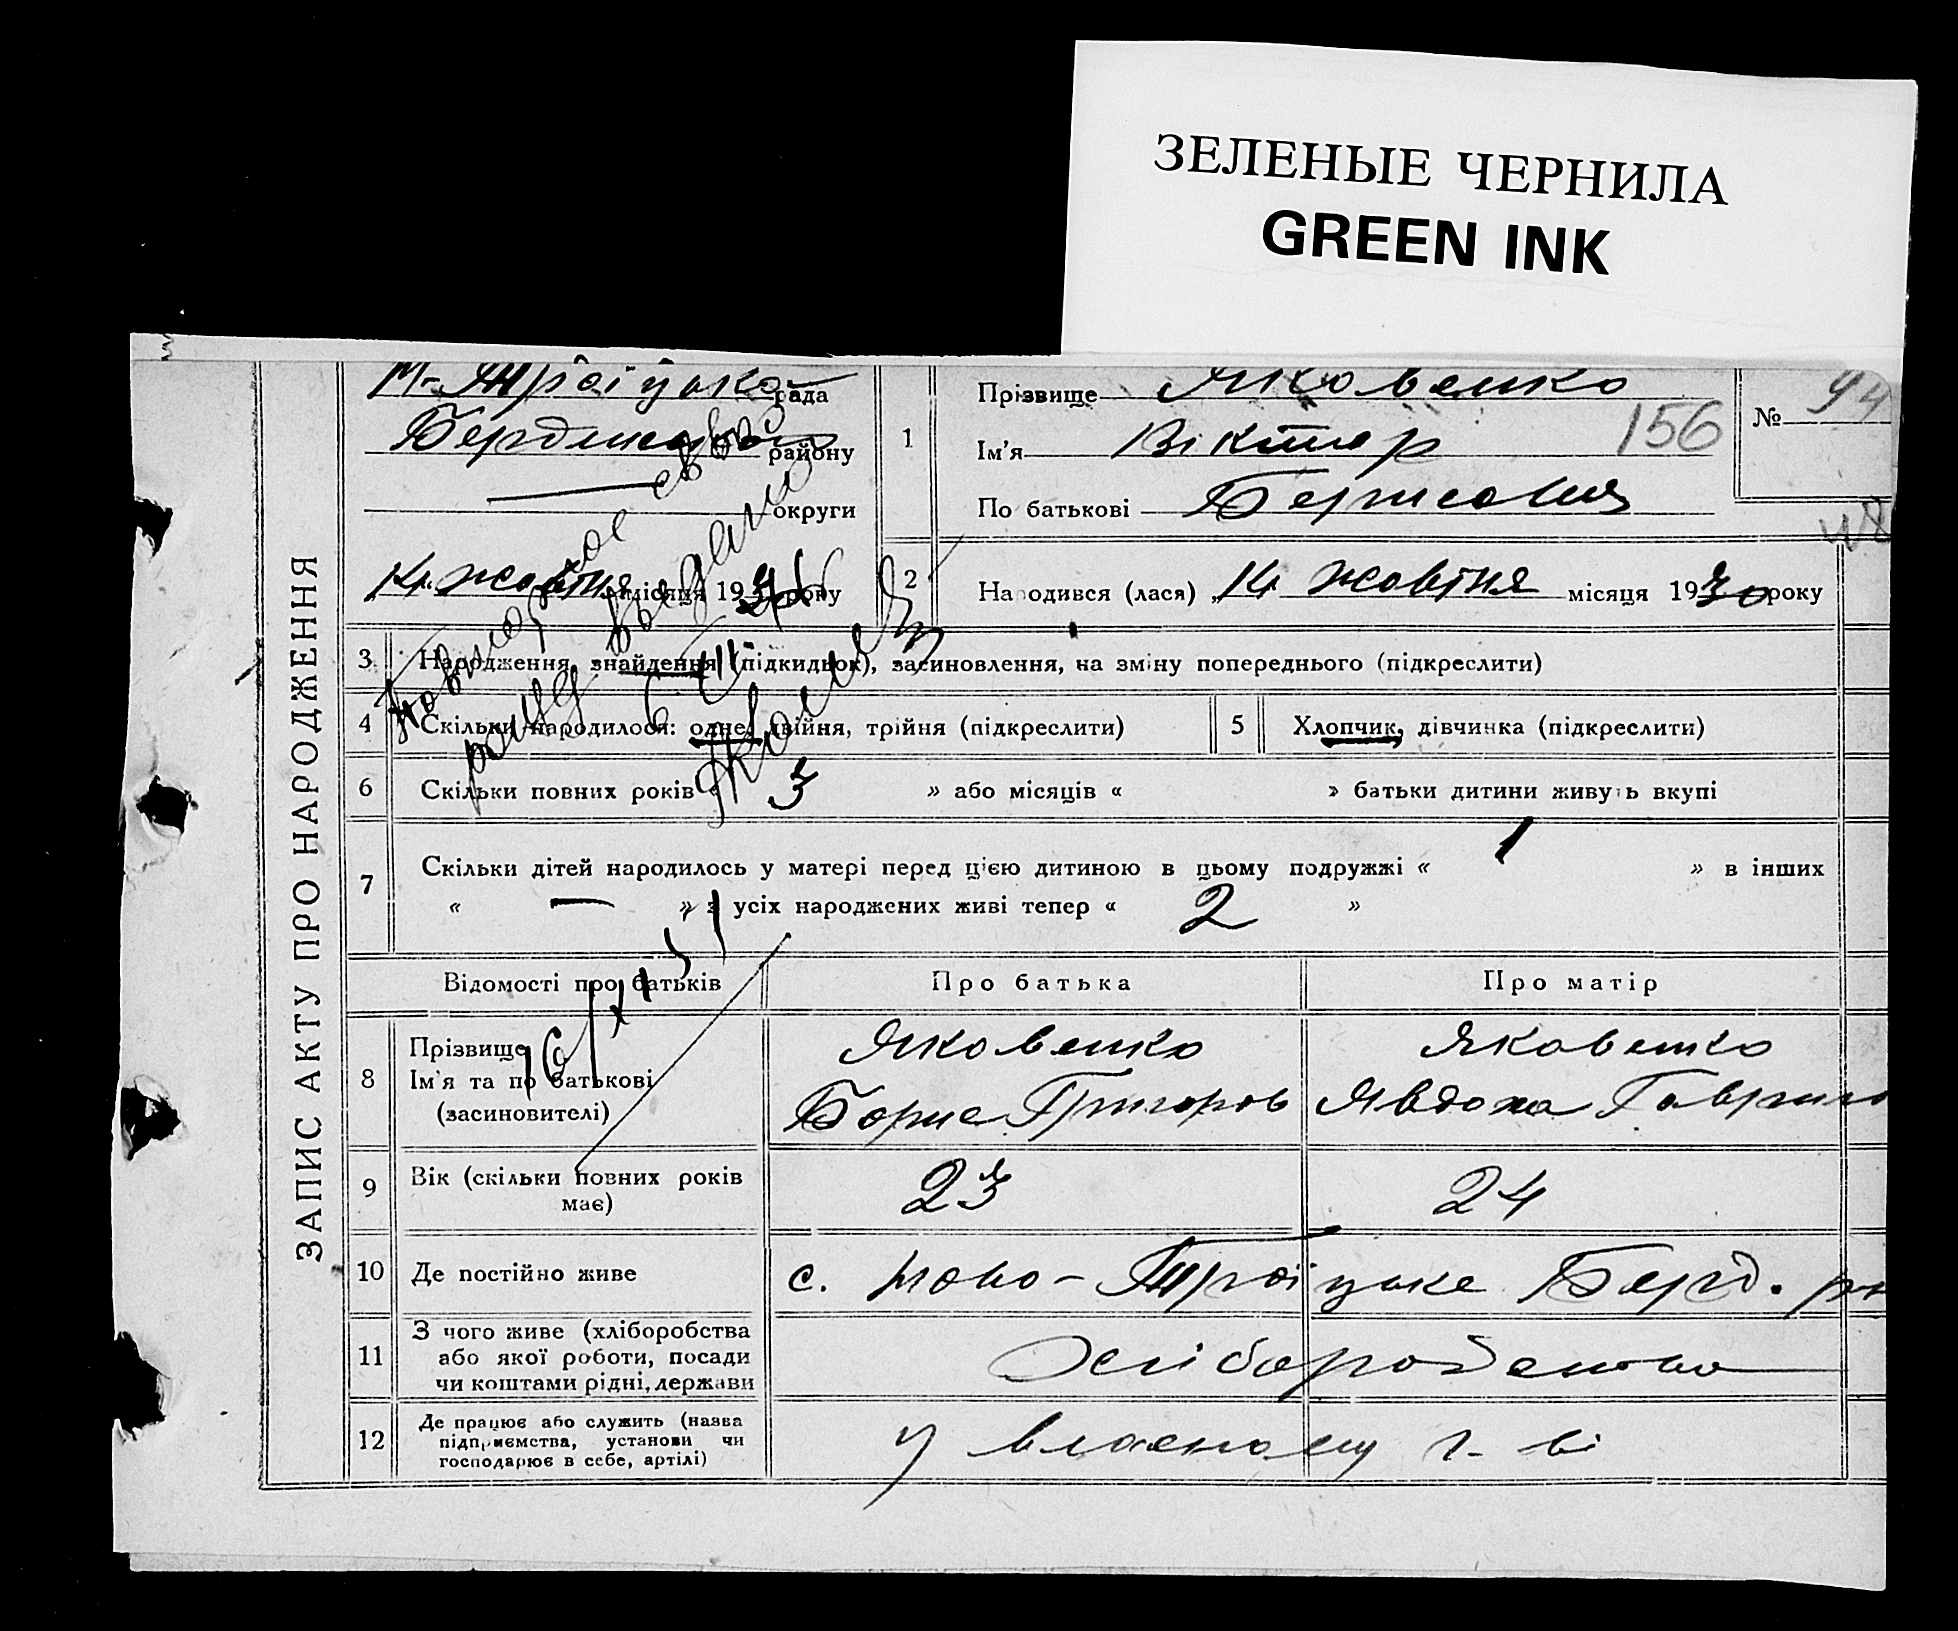 ЗЕЛЕНЫЕ ЧЕРНИЛА
GREEN INK
ЗАПИС АКТУ ПРО НАРОДЖЕННЯ
Н-Троїцька рада
Бердянського району
округи
14 жовтня місяця 193 року
1
Прізвище Яковенко
Ім'я Віктор
По батькові Борисович
156
№ 94
48
2
Народився (лася) „14 жовтня місяця 1930 року
Повторное свво
выдано
3 Народження, знайдення (підкидьок), засиновлення, на зміну попереднього (підкреслити)
4 Скільки народилося: одне, двійня, трійня (підкреслити)
5 Хлопчик, дівчинка (підкреслити)
6 Скільки повних років « 3 » або місяців « » батьки дитини живуть вкупі
7 Скільки дітей народилось у матері перед цією дитиною в цьому подружжі « 1 » в інших
« — » з усіх народжених живі тепер « 2 »
Відомості про батьків
Про батька
Про матір
16/XI
8 Прізвище
Ім'я та по батькові
(засиновителі)
Яковенко
Борис Григоров
Яковенко
Явдоха Гаврило
9 Вік (скільки повних років
має)
23
24
10 Де постійно живе
с. Ново-Троїцьке Берд. р-н
11 З чого живе (хліборобства
або якої роботи, посади
чи коштами рідні, держави
Хліборобство
12 Де працює або служить (назва
підприємства, установи чи
господарює в себе, артілі)
у власному г-ві